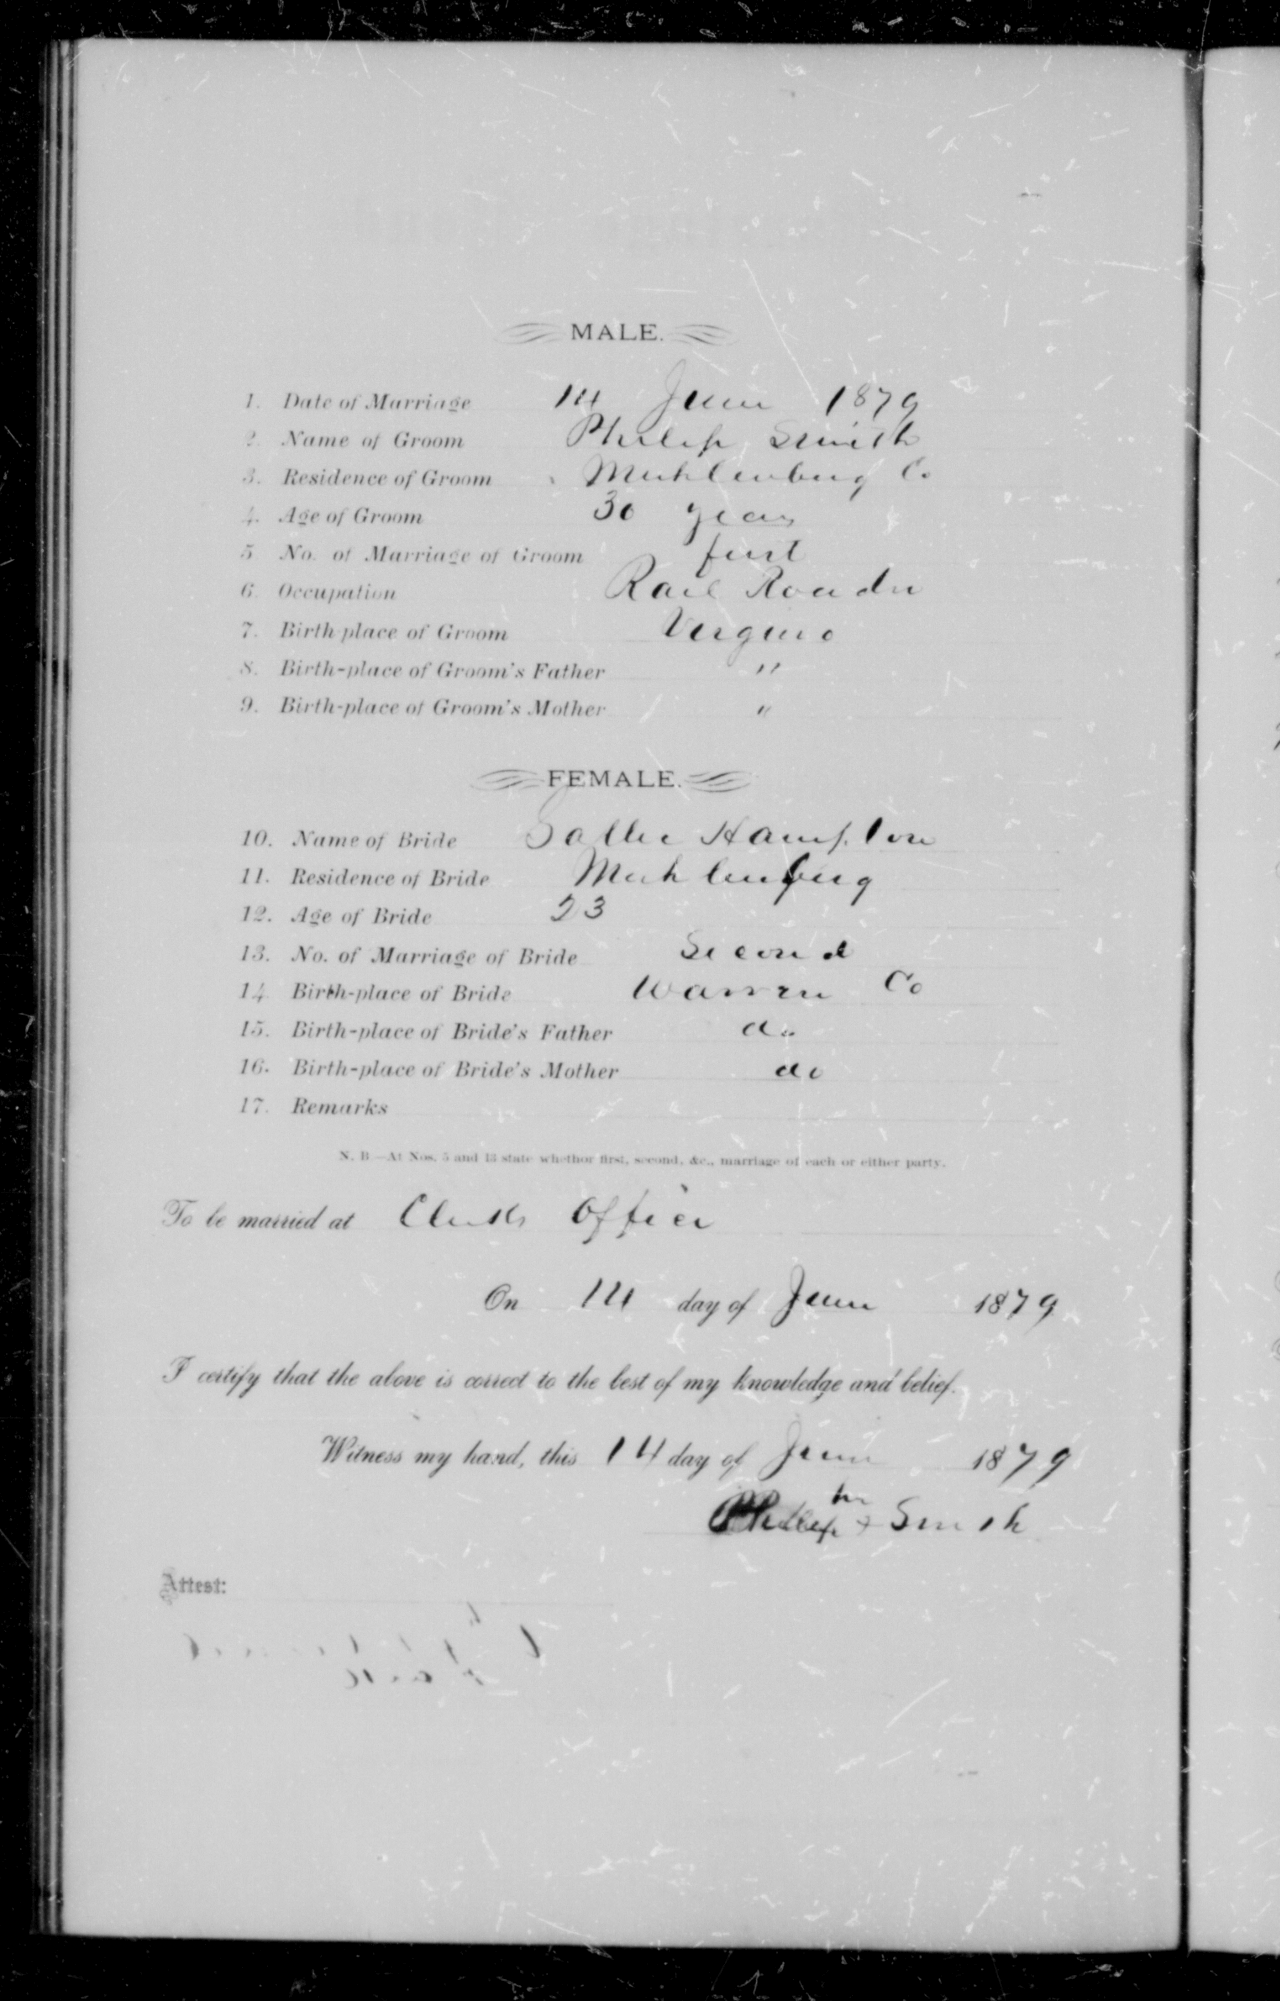 MALE.
1. Date of Marriage 14 June 1879
2. Name of Groom Philip Smith
3. Residence of Groom Muhlenburg Co
4. Age of Groom 30 years
5 No. of Marriage of Groom first
6. Occupation Rail Roader
7. Birth-place of Groom Virginia
8. Birth-place of Groom's Father "
9. Birth-place of Groom's Mother "
FEMALE.
10. Name of Bride Sallie Hampton
11. Residence of Bride Muhlenburg
12. Age of Bride 23
13. No. of Marriage of Bride Second
14 Birth-place of Bride Warren Co
15. Birth-place of Bride's Father do
16. Birth-place of Bride's Mother do
17. Remarks
N. B.—At Nos. 5 and 13 state whether first, second, &c., marriage of each or either party.
To be married at Clerks Office
On 14 day of June 1879
I certify that the above is correct to the best of my knowledge and belief.
Witness my hand, this 14 day of June 1879
Philip + Smith
Attest: